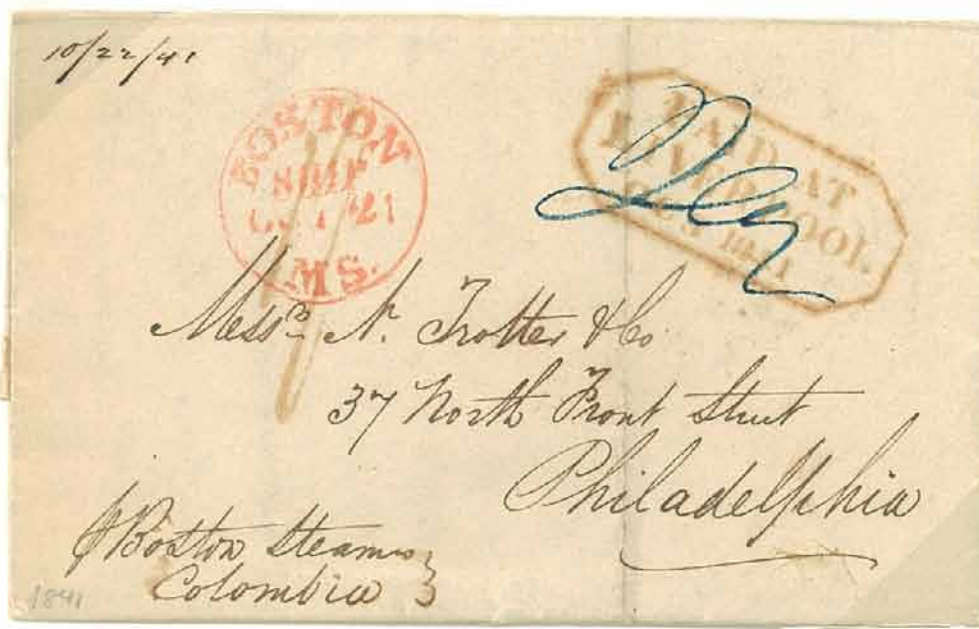 10/22/41
BOSTON
SHIP
OCT 21
MS.
PAID AT
LIVERPOOL
1841
Messrs N. Trotter & Co
37 North Front Street
Philadelphia
p Boston Steamer
Colombia
1841